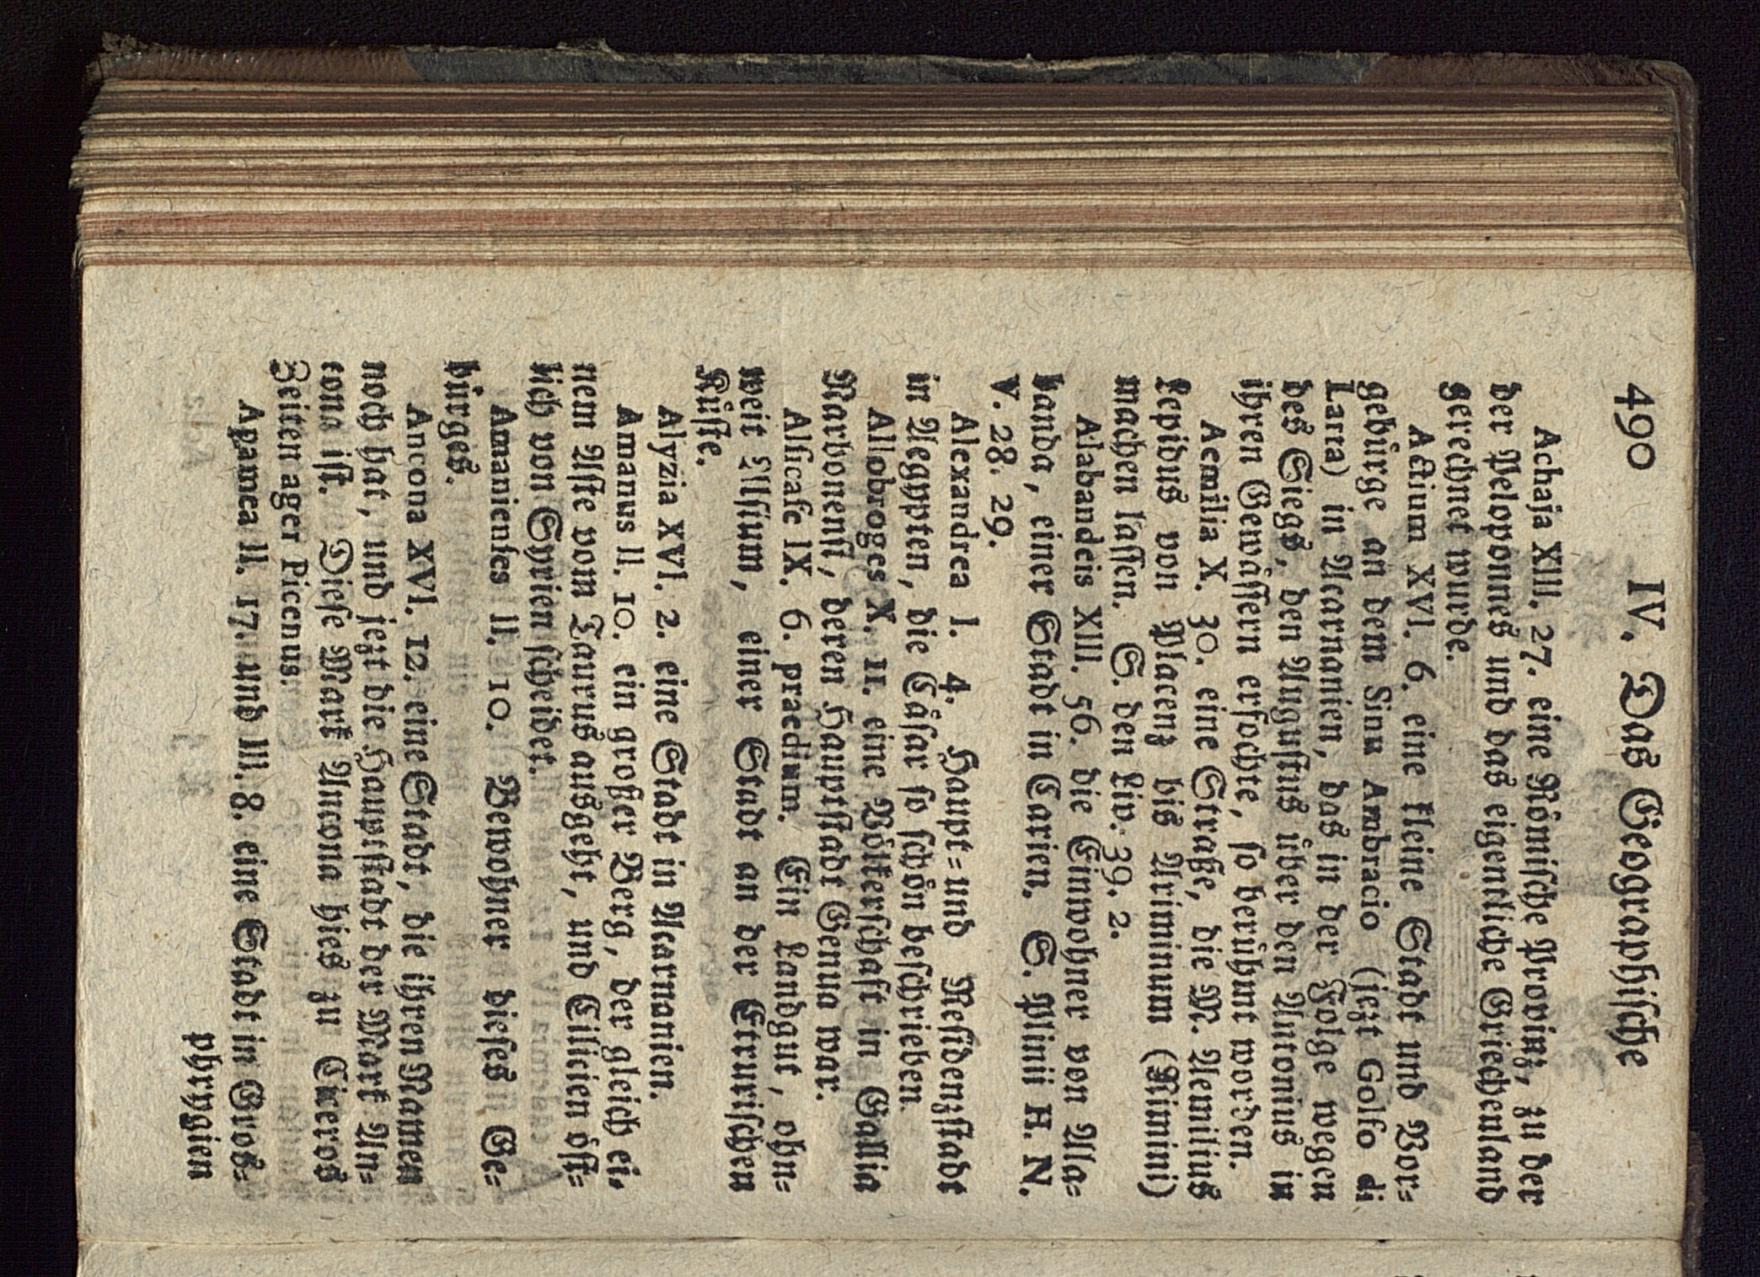 490 IV. Das Geographische
Achaja XIII. 27. eine Römische Provinz, zu der
der Peloponnes und das eigentliche Griechenland
gerechnet wurde.
Actium XVI. 6. eine kleine Stadt und Vor-
gebürge an dem Sinu Ambracio (jezt Golfo di
Larta) in Acarnanien, das in der Folge wegen
des Siegs, den Augustus über den Antonius in
ihren Gewässern erfochte, so berühmt worden.
Aemilia X. 30. eine Straße, die M. Aemilius
Lepidus von Placenz bis Ariminum (Rimini)
machen lassen. S. den Liv. 39. 2.
Alabandeis XIII. 56. die Einwohner von Ala-
banda, einer Stadt in Carien. S. Plinii H. N.
V. 28. 29.
Alexandrea I. 4. Haupt- und Residenzstadt
in Aegypten, die Cäsar so schön beschrieben.
Allobroges X. 11. eine Völkerschaft in Gallia
Narbonensi, deren Hauptstadt Genua war.
Alsicase IX. 6. praedium. Ein Landgut, ohn-
weit Alsium, einer Stadt an der Etrurischen
Küste.
Alyzia XVI. 2. eine Stadt in Acarnanien.
Amanus II. 10. ein großer Berg, der gleich ei-
nem Aste vom Taurus ausgeht, und Cilicien öst-
lich von Syrien scheidet.
Amanienses II. 10. Bewohner dieses Ge-
bürges.
Ancona XVI. 12. eine Stadt, die ihren Namen
noch hat, und jezt die Hauptstadt der Mark An-
cona ist. Diese Mark Ancona hies zu Ciceros
Zeiten ager Picenus.
Apamea II. 17. und III. 8. eine Stadt in Groß-
phrygien